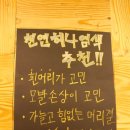 천연헤나염색
추천!!
• 흰머리가 고민
• 모발손상이 고민
• 가늘고 힘없는 머리결